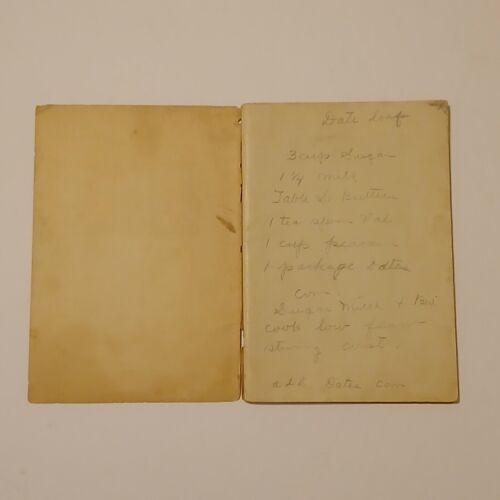 Date loaf
3 cup Sugar
1 1/4 milk
Table S. Butter
1 tea spoon Val
1 cup pecans
1 package Dates
Com.
Sugar Milk +
cook low flame
string const.
add Dates com